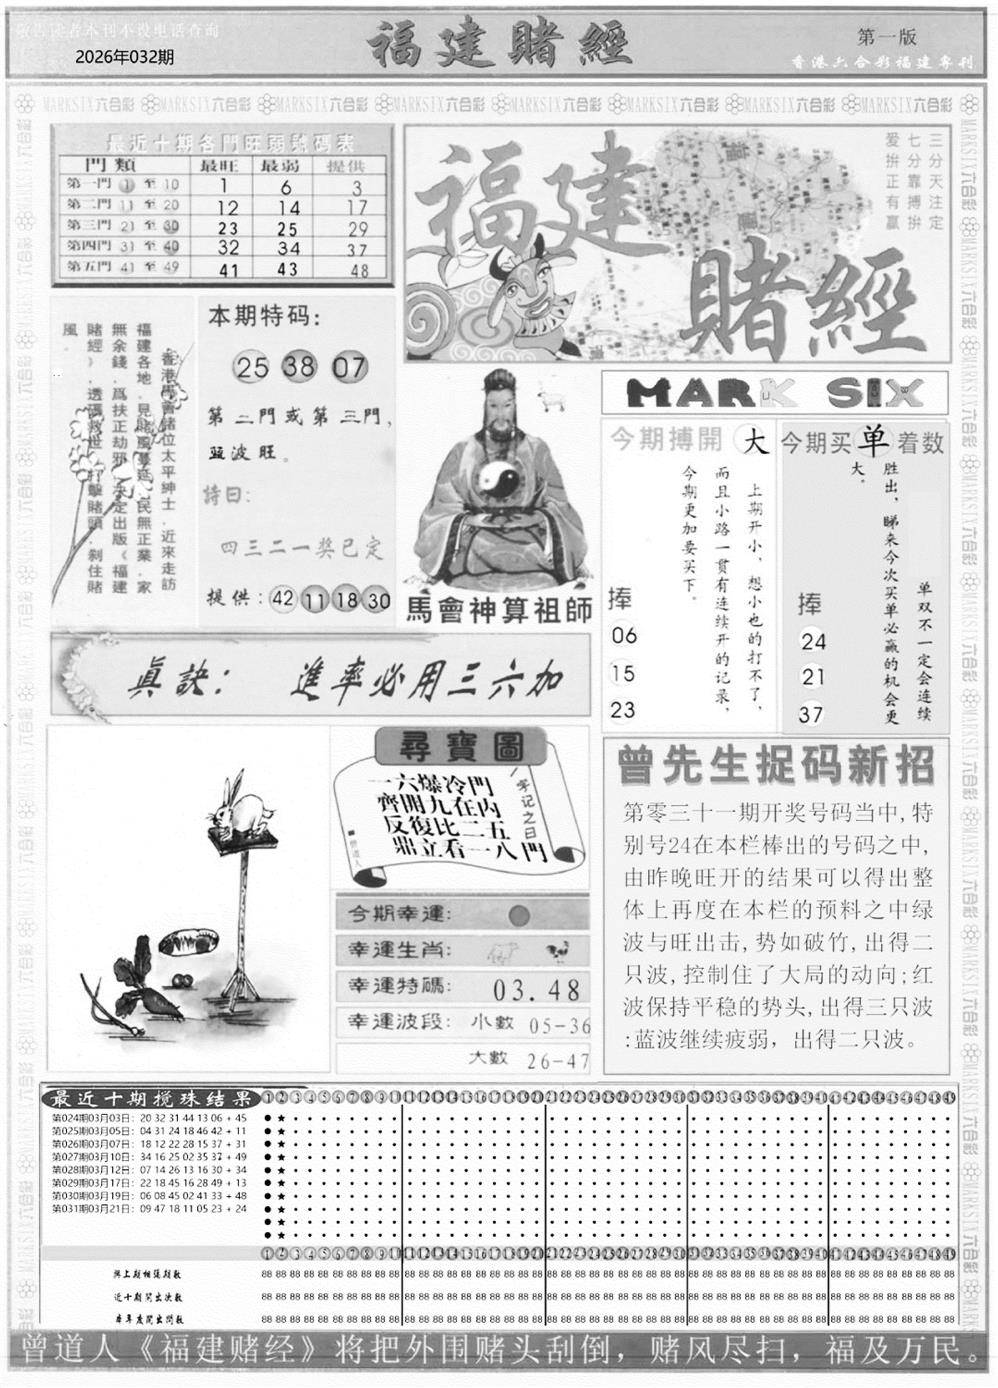 敬告读者本刊不设电话查询
2026年032期
福建賭經
第一版
香港六合彩福建專刊
MARKSIX六合彩 MARKSIX六合彩 MARKSIX六合彩 MARKSIX六合彩 MARKSIX六合彩 MARKSIX六合彩 MARKSIX六合彩 MARKSIX六合彩
最近十期各門旺弱號碼表
門類 最旺 最弱 提供
第一門 1 至 10 1 6 3
第二門 11 至 20 12 14 17
第三門 21 至 30 23 25 29
第四門 31 至 40 32 34 37
第五門 41 至 49 41 43 48
福建
賭經
三分天注定
七分靠搏拚
爱拚正有贏
香港馬會諸位太平紳士.近來走訪
福建各地.見賭風蔓延.民無正業.家
無余錢.爲扶正劫邪.决定出版《福建
賭經》.透碼救世.打擊賭頭.剝住賭
風.
本期特码:
25 38 07
第二門或第三門,
蓝波旺。
詩曰:
四三二一奖已定
提供: 42 11 18 30
馬會神算祖師
MARK SIX
今期搏開 大
上期开小，想小也的打不了，
而且小路一贯有连续开的记录，
今期更加要买下。
捧
06
15
23
今期买 单 着数
单双不一定会连续
胜出，睇来今次买单必赢的机会更
大。
捧
24
21
37
真訣: 進率必用三六加
尋寶圖
一六爆冷門
齊開九在内
反復比二五
鼎立看一八
一字记之曰門
■曾道人
今期幸運:
幸運生肖:
幸運特碼: 03.48
幸運波段: 小數 05-36
大數 26-47
曾先生捉码新招
第零三十一期开奖号码当中,特
别号24在本栏棒出的号码之中,
由昨晚旺开的结果可以得出整
体上再度在本栏的预料之中绿
波与旺出击,势如破竹,出得二
只波,控制住了大局的动向;红
波保持平稳的势头,出得三只波
:蓝波继续疲弱，出得二只波。
最近十期搅珠结果
第024期03月03日: 20 32 31 44 13 06 + 45
第025期03月05日: 04 31 24 18 46 42 + 11
第026期03月07日: 18 12 22 28 15 37 + 31
第027期03月10日: 34 16 25 02 35 37 + 49
第028期03月12日: 07 14 26 13 16 30 + 34
第029期03月17日: 22 18 45 16 28 49 + 13
第030期03月19日: 06 08 45 02 41 33 + 48
第031期03月21日: 09 47 18 11 05 23 + 24
與上期相隔期数
近十期開出次数
本年度開出期数
曾道人《福建赌经》将把外围赌头刮倒，赌风尽扫，福及万民。